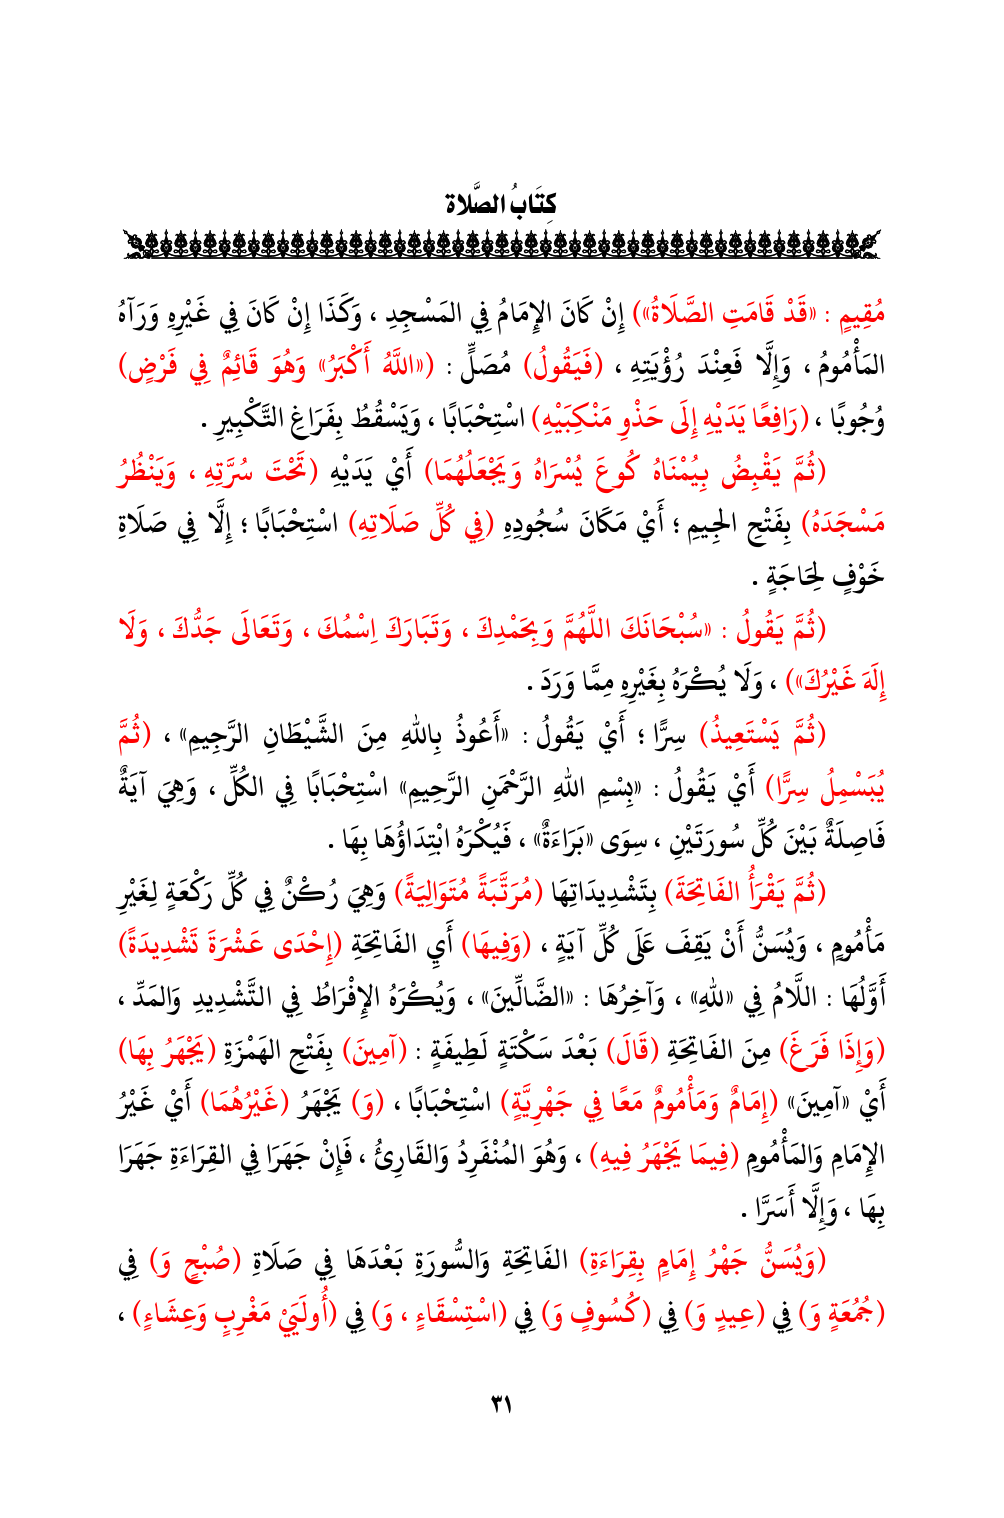 كِتَابُ الصَّلاة
مُقِيمٍ : «قَدْ قَامَتِ الصَّلَاةُ») إِنْ كَانَ الإِمَامُ فِي المَسْجِدِ ، وَكَذَا إِنْ كَانَ فِي غَيْرِهِ وَرَآهُ
المَأْمُومُ ، وَإِلَّا فَعِنْدَ رُؤْيَتِهِ ، (فَيَقُولُ) مُصَلٍّ : («اللَّهُ أَكْبَرُ» وَهُوَ قَائِمٌ فِي فَرْضٍ)
وُجُوبًا ، (رَافِعًا يَدَيْهِ إِلَى حَذْوِ مَنْكِبَيْهِ) اسْتِحْبَابًا ، وَيَسْقُطُ بِفَرَاغِ التَّكْبِيرِ .
(ثُمَّ يَقْبِضُ بِيُمْنَاهُ كُوعَ يُسْرَاهُ وَيَجْعَلُهُمَا) أَيْ يَدَيْهِ (تَحْتَ سُرَّتِهِ ، وَيَنْظُرُ
مَسْجَدَهُ) بِفَتْحِ الجِيمِ ؛ أَيْ مَكَانَ سُجُودِهِ (فِي كُلِّ صَلَاتِهِ) اسْتِحْبَابًا ؛ إِلَّا فِي صَلَاةِ
خَوْفٍ لِحَاجَةٍ .
(ثُمَّ يَقُولُ : «سُبْحَانَكَ اللَّهُمَّ وَبِحَمْدِكَ ، وَتَبَارَكَ اِسْمُكَ ، وَتَعَالَى جَدُّكَ ، وَلَا
إِلَهَ غَيْرُكَ») ، وَلَا يُكْرَهُ بِغَيْرِهِ مِمَّا وَرَدَ .
(ثُمَّ يَسْتَعِيذُ) سِرًّا ؛ أَيْ يَقُولُ : «أَعُوذُ بِاللهِ مِنَ الشَّيْطَانِ الرَّجِيمِ» ، (ثُمَّ
يُبَسْمِلُ سِرًّا) أَيْ يَقُولُ : «بِسْمِ اللهِ الرَّحْمَنِ الرَّحِيمِ» اسْتِحْبَابًا فِي الكُلِّ ، وَهِيَ آيَةٌ
فَاصِلَةٌ بَيْنَ كُلِّ سُورَتَيْنِ ، سِوَى «بَرَاءَةٌ» ، فَيُكْرَهُ ابْتِدَاؤُهَا بِهَا .
(ثُمَّ يَقْرَأُ الفَاتِحَةَ) بِتَشْدِيدَاتِهَا (مُرَتَّبَةً مُتَوَالِيَةً) وَهِيَ رُكْنٌ فِي كُلِّ رَكْعَةٍ لِغَيْرِ
مَأْمُومٍ ، وَيُسَنُّ أَنْ يَقِفَ عَلَى كُلِّ آيَةٍ ، (وَفِيهَا) أَيِ الفَاتِحَةِ (إِحْدَى عَشْرَةَ تَشْدِيدَةً)
أَوَّلُهَا : اللَّامُ فِي «للهِ» ، وَآخِرُهَا : «الضَّالِّينَ» ، وَيُكْرَهُ الإِفْرَاطُ فِي التَّشْدِيدِ وَالمَدِّ ،
(وَإِذَا فَرَغَ) مِنَ الفَاتِحَةِ (قَالَ) بَعْدَ سَكْتَةٍ لَطِيفَةٍ : (آمِينَ) بِفَتْحِ الهَمْزَةِ (يَجْهَرُ بِهَا)
أَيْ «آمِينَ» (إِمَامٌ وَمَأْمُومٌ مَعًا فِي جَهْرِيَّةٍ) اسْتِحْبَابًا ، (وَ) يَجْهَرُ (غَيْرُهُمَا) أَيْ غَيْرُ
الإِمَامِ وَالمَأْمُومِ (فِيمَا يَجْهَرُ فِيهِ) ، وَهُوَ المُنْفَرِدُ وَالقَارِئُ ، فَإِنْ جَهَرَا فِي القِرَاءَةِ جَهَرَا
بِهَا ، وَإِلَّا أَسَرَّا .
(وَيُسَنُّ جَهْرُ إِمَامٍ بِقِرَاءَةِ) الفَاتِحَةِ وَالسُّورَةِ بَعْدَهَا فِي صَلَاةِ (صُبْحٍ وَ) فِي
(جُمُعَةٍ وَ) فِي (عِيدٍ وَ) فِي (كُسُوفٍ وَ) فِي (اسْتِسْقَاءٍ ، وَ) فِي (أُولَيَيْ مَغْرِبٍ وَعِشَاءٍ) ،
٣١